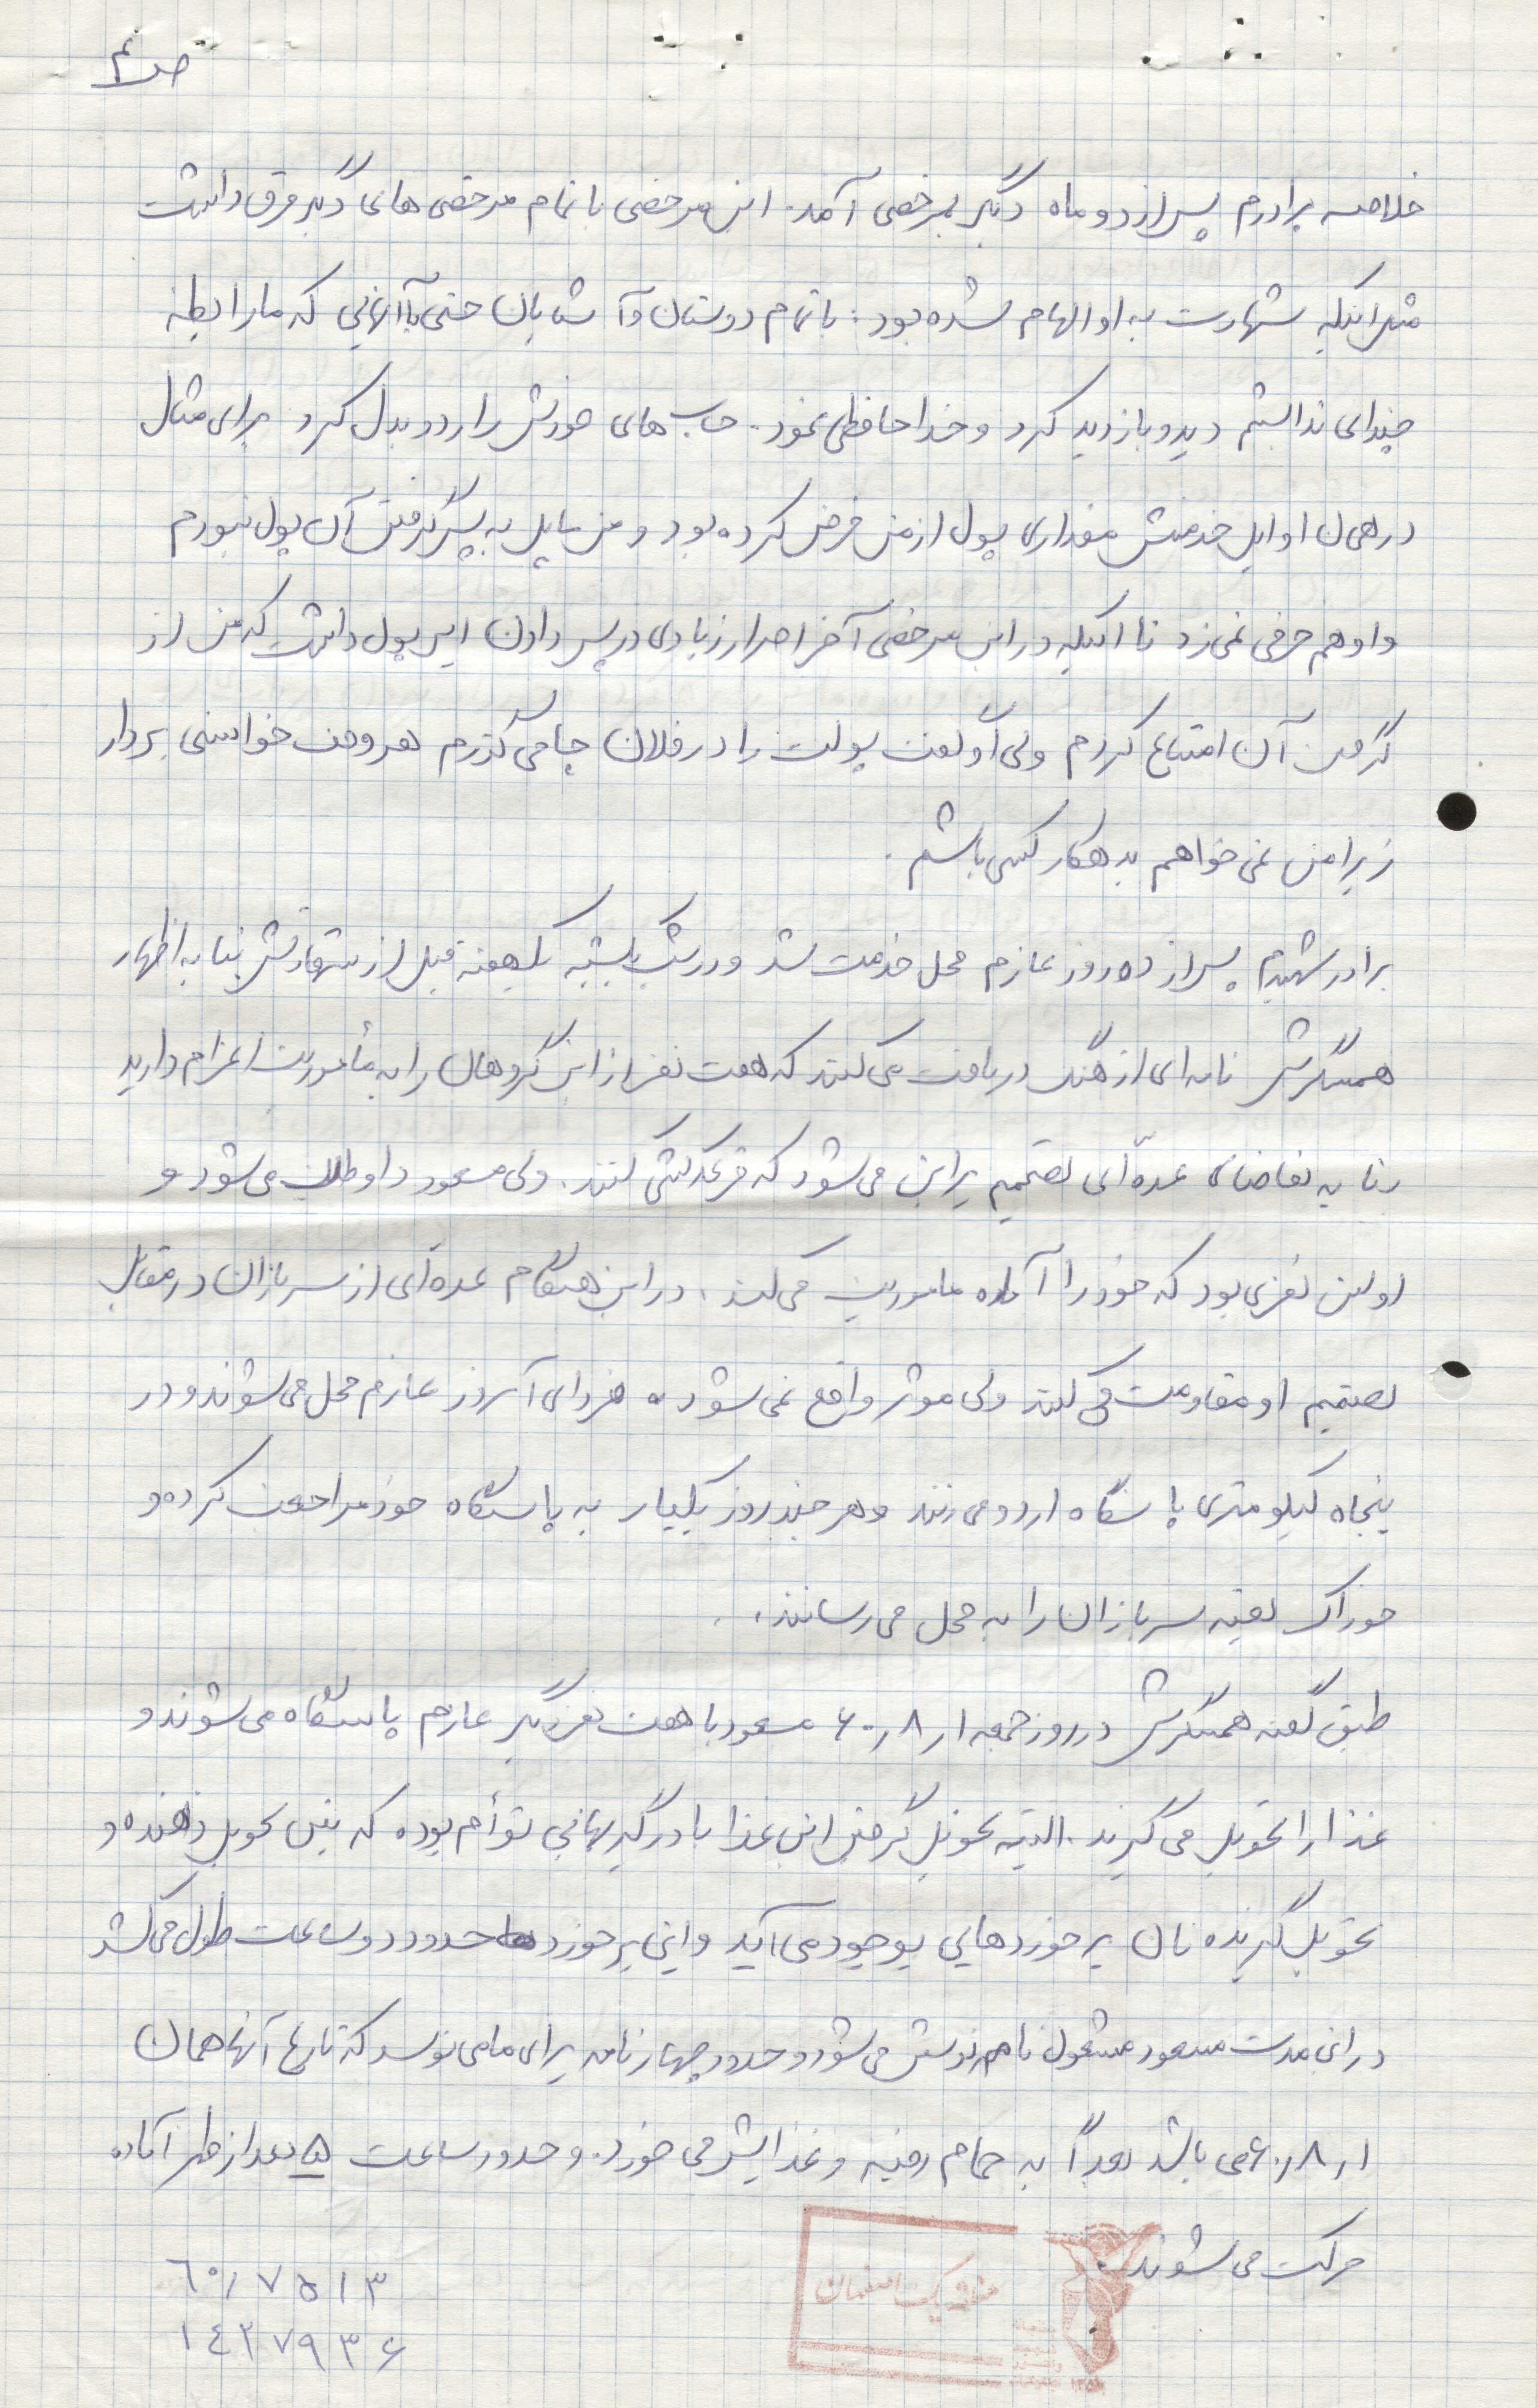 ص ۴
خلاصه برادرم پس از دو ماه دیگر بمرخصی آمد. این مرخصی با تمام مرخصی های دیگر فرق داشت
مثل اینکه شهادت به او الهام شده بود. با تمام دوستان و آشنایان حتی با آنهایی که ما رابطه
چندای نداشتم دید و بازدید کرد و خداحافظی نمود. حساب های خودش را رد و بدل کرد برای مثال
در همان اوایل خدمتش مقداری پول از من قرض کرده بود و من مایل به پس گرفتن آن پول نبودم
و او هم حرفی نمی زد تا اینکه در این مرخصی آخر اصرار زیادی در پس دادن این پول داشت که من از
گرفتن آن امتناع کردم ولی او گفت پولت را در فلان جا می گذرم هر وقت خواستی بردار
زیرا من نمی خواهم بدهکار کسی باشم.
برادر شهیدم پس از ده روز عازم محل خدمت شد و در شب یکهفته قبل از شهادتش بنا به اظهار
همسنگرش نامه ای از هنگ دریافت می کنند که هفت نفر از این گروهان را به مأموریت اعزام دارید
بنا به تقاضای عده ای تصمیم براین می شود که قرعه کشی کنند. ولی مسعود داوطلب می شود و
اولین نفری بود که خود را آماده ماموریت می کند. در این هنگام عده ای از سربازان در مقابل
تصمیم او مقاومت می کنند ولی موثر واقع نمی شود. فردای آنروز عازم محل می شوند و در
پنجاه کیلومتری پاسگاه اردو می زنند و هر چند روز یکبار به پاسگاه خود مراجعت کرده و
خوراک بقیه سربازان را به محل می رسانند.
طبق گفته همسنگرش در روز جمعه ۶۰٫۸٫۱ مسعود با هفت نفر دیگر عازم پاسگاه می شوند و
غذا را تحویل می گیرند. البته تحویل گرفتن این غذا با درگیریهایی توأم بوده که بین تحویل دهنده و
تحویل گیرنده نان برخوردهایی بوجود می آید و این برخوردها حدود دو ساعت طول می کشد
در این مدت مسعود مشغول نامه نویسی می شود و حدود چهار نامه برای ما می نویسد که تاریخ آنها همان
۶۰٫۸٫۱ می باشد بعداً به حمام رفته و غذایش می خورد. و حدود ساعت ۵ بعد از ظهر آماده
حرکت می شوند.
منطقه یک اصفهان
۶۰/۷۵۱۳
۱۴۲۷۹۳۶